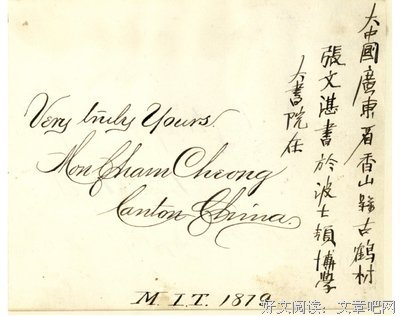 Very truly Yours.
Mon Cham Cheong
Canton China.
大中國廣東省香山縣古鶴村
張文湛書於波士頓博學
書院
M.I.T. 1879
好文阅读：文章吧网